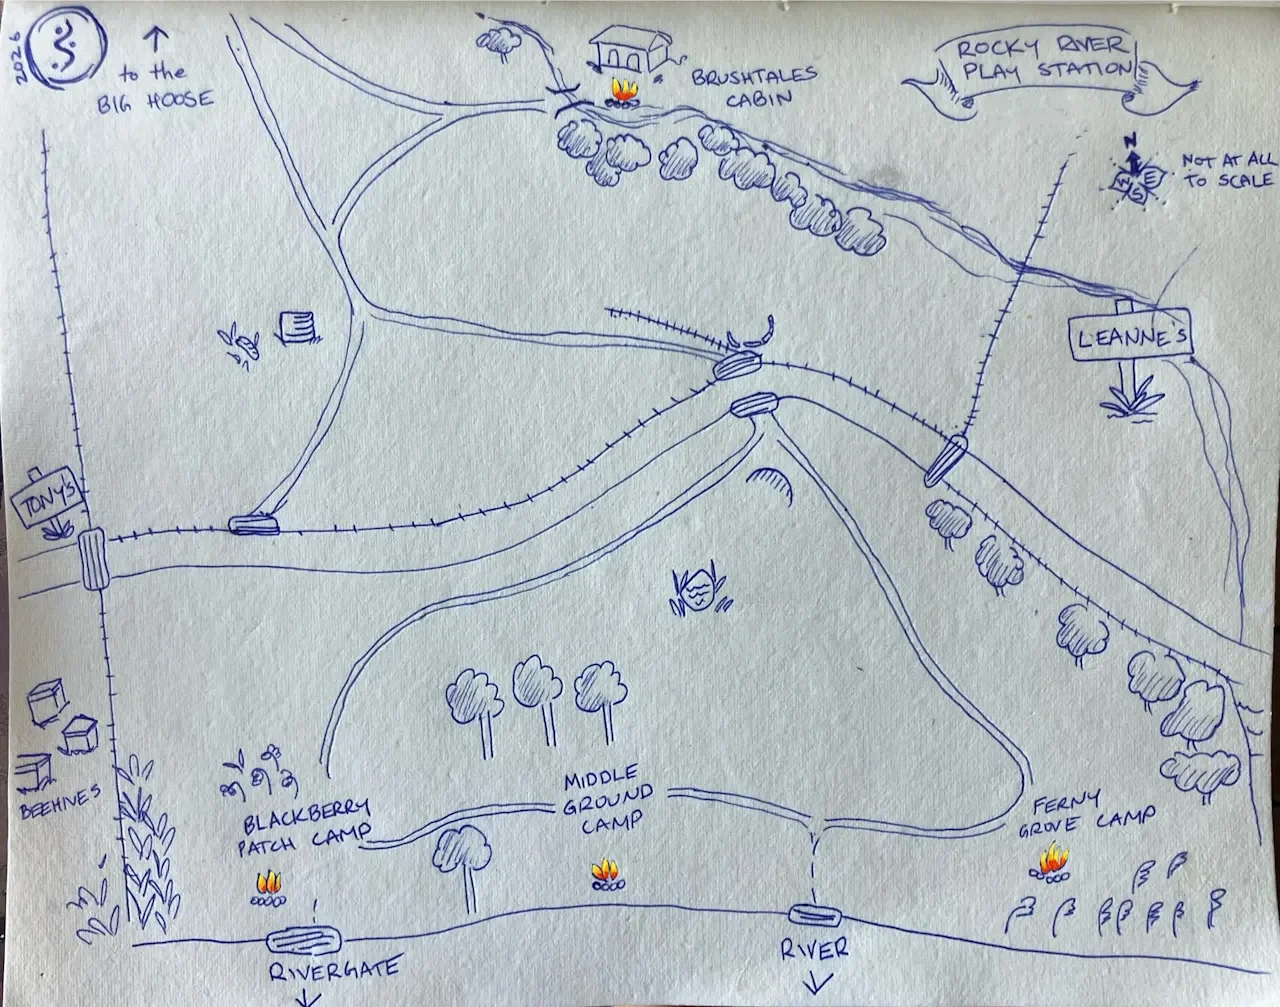 2026
to the
BIG HOOSE
BRUSHTALES
CABIN
ROCKY RIVER
PLAY STATION
N
W E
S
NOT AT ALL
TO SCALE
LEANNE'S
TONY'S
BEEHIVES
BLACKBERRY
PATCH CAMP
MIDDLE
GROUND
CAMP
FERNY
GROVE CAMP
RIVERGATE
RIVER